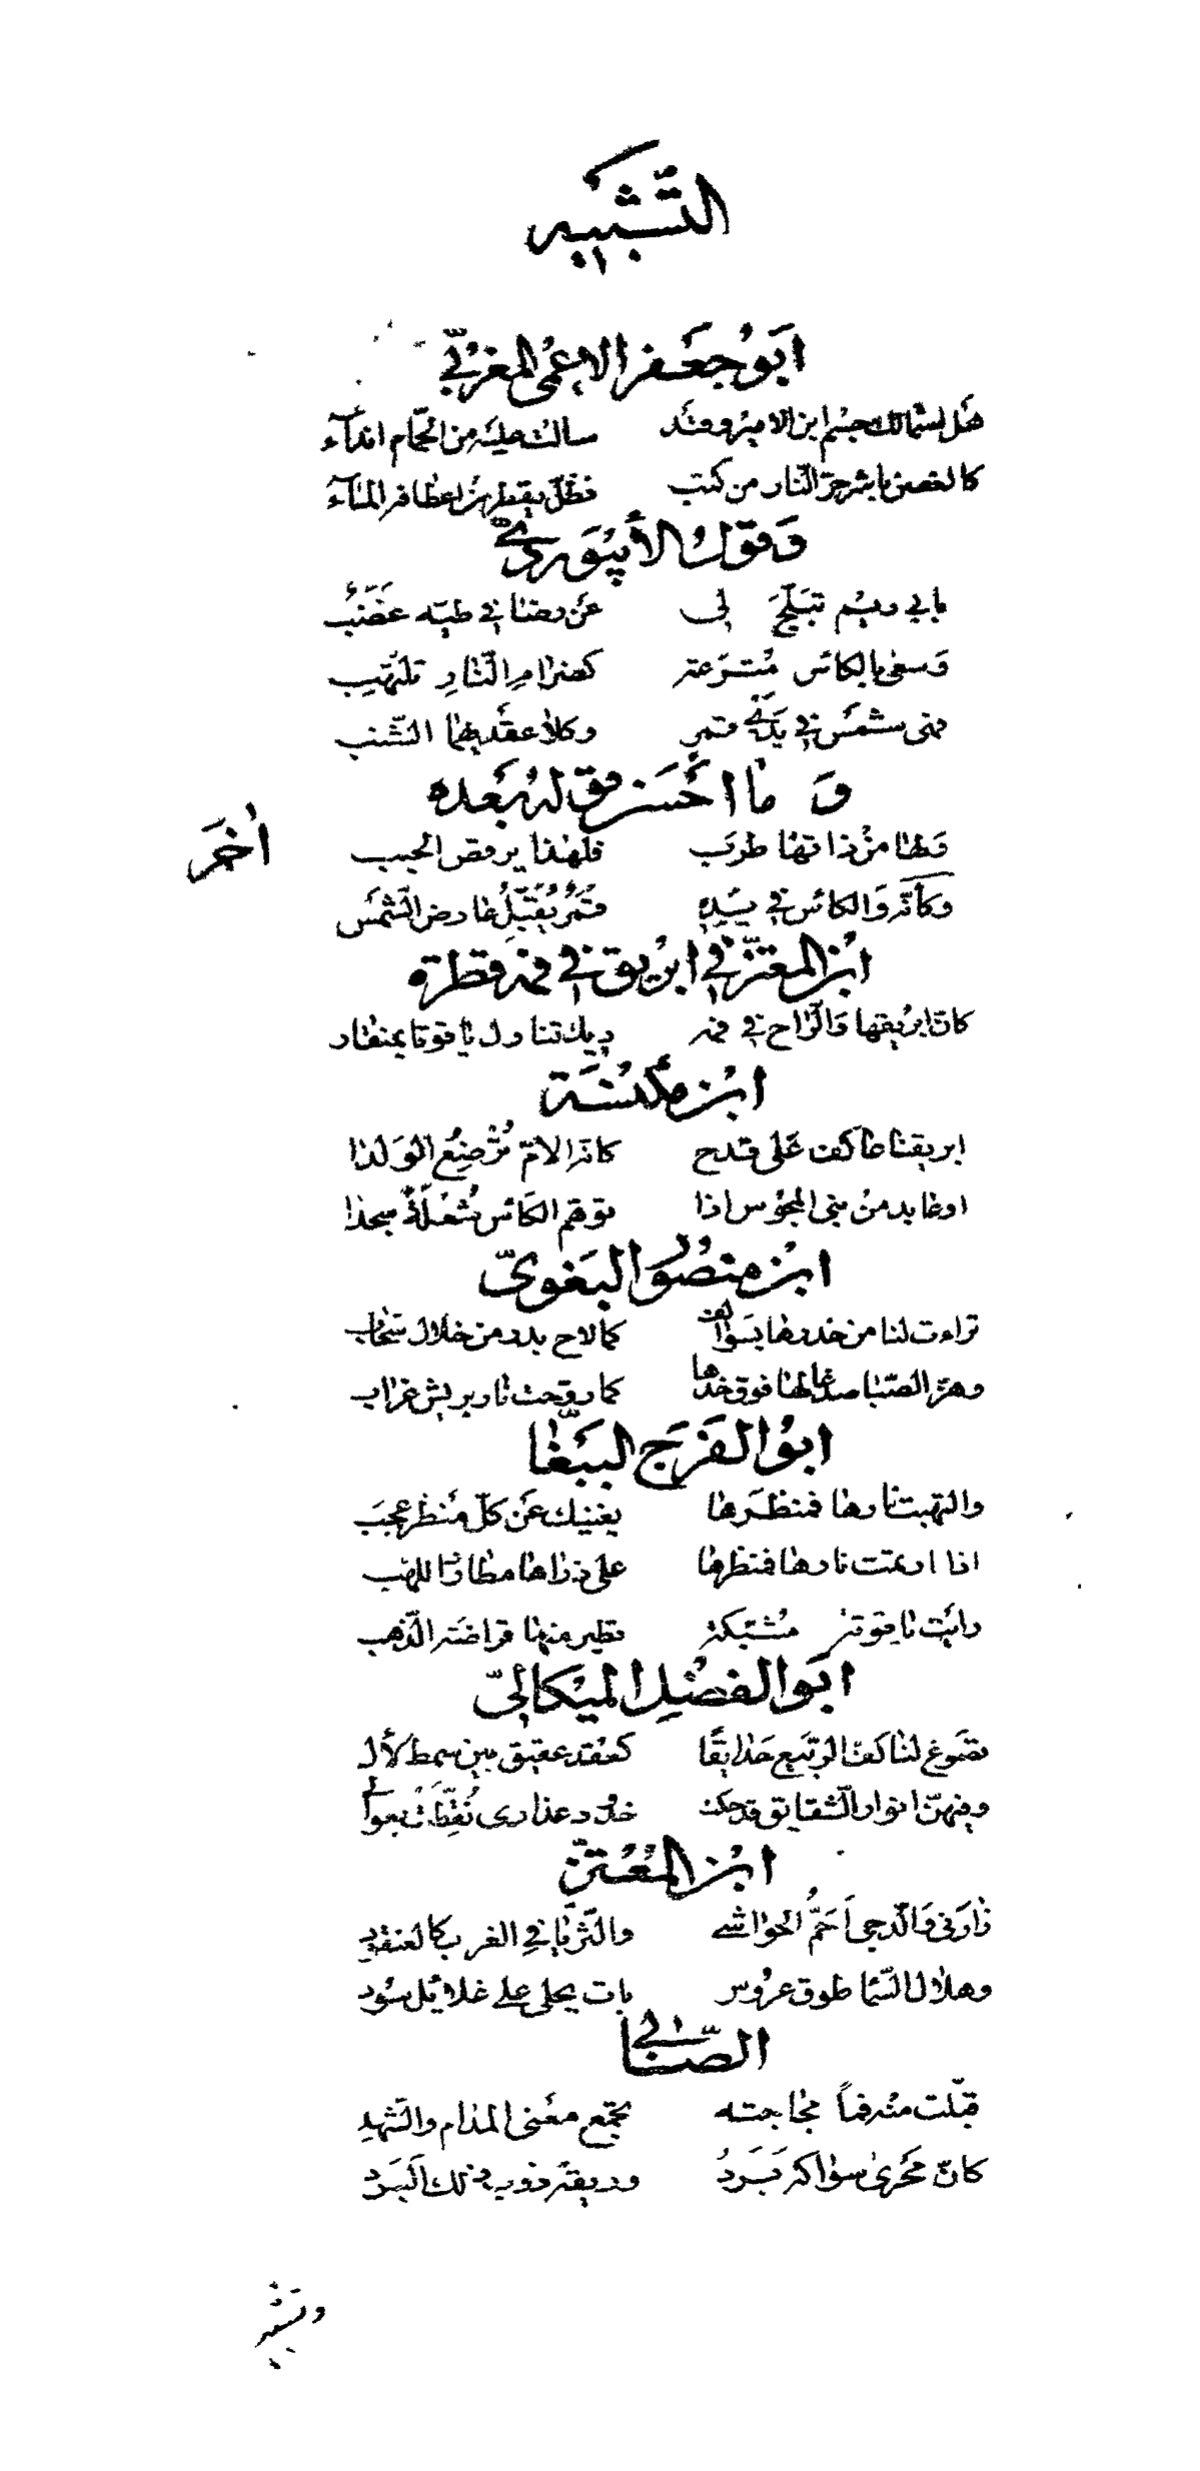 التّشبيه
ابو جعفر الاعمى المغربيّ
هل استمالك جسم ابن الامير وقد سالت عليه من الحمّام انداء
كالغصن باشر حرّ النّار من كثب فظلّ يقطر من اعطافه الماء
وقول الأبيوردي
بابي ريم تبلّج لي عن رضا في طيّه غضب
وسعى بالكاس مترعة كضرام النّار تلتهب
فهي شمس في يدي قمر وكلا عقديهما الشّنب
و ما احسن قوله بعده
فلها من ذاتها طرب فلهذا يرقص الحبب
اخر
وكأنّه والكاس في يده قمر يقبّل عارض الشّمس
ابن المعتزّ في ابريق في فمه قطرة
كانّ ابريقها والرّاح في فمه ديك تناول ياقوتا بمنقار
ابن مكنسة
ابريقنا عاكف على قدح كانّه الامّ ترضع الولدا
او عابد من بني المجوس اذا توهّم الكاس شعلة سجدا
ابن منصور البغويّ
تراءت لنا من خدرها بسوالف كما لاح بدر من خلال سحاب
وهزّ الصّبا صدغا لها فوق خدّها كما روّحت نار بريش غراب
ابو الفرج الببّغا
والتهبت نارها فمنظرها يغنيك عن كلّ منظر عجب
اذا ارتمت نارها فمنظرها على ذراها مطارفا للهب
رايت ياقوتة مشتبكة تطير منها قراضة الذّهب
ابو الفضل الميكاليّ
تصوغ لنا كفّ الرّبيع حدايقا كعقد عقيق بين سمط لأل
وفيهنّ انوار الشّقايق قد حكت خدود عذارى نقّطت بغوالي
ابن المعتزّ
زارني والدّجى احمّ الحواشي والثّريّا في الغرب كالعنقود
وهلال السّما طوق عروس بات يجلى على غلائل سود
الصّابي
قبّلت منه فماً مجاجته تجمع معنى المدام والشّهد
كانّ مجرى سواكه برد وريقه ذوب ذلك البرد
وتشبيه